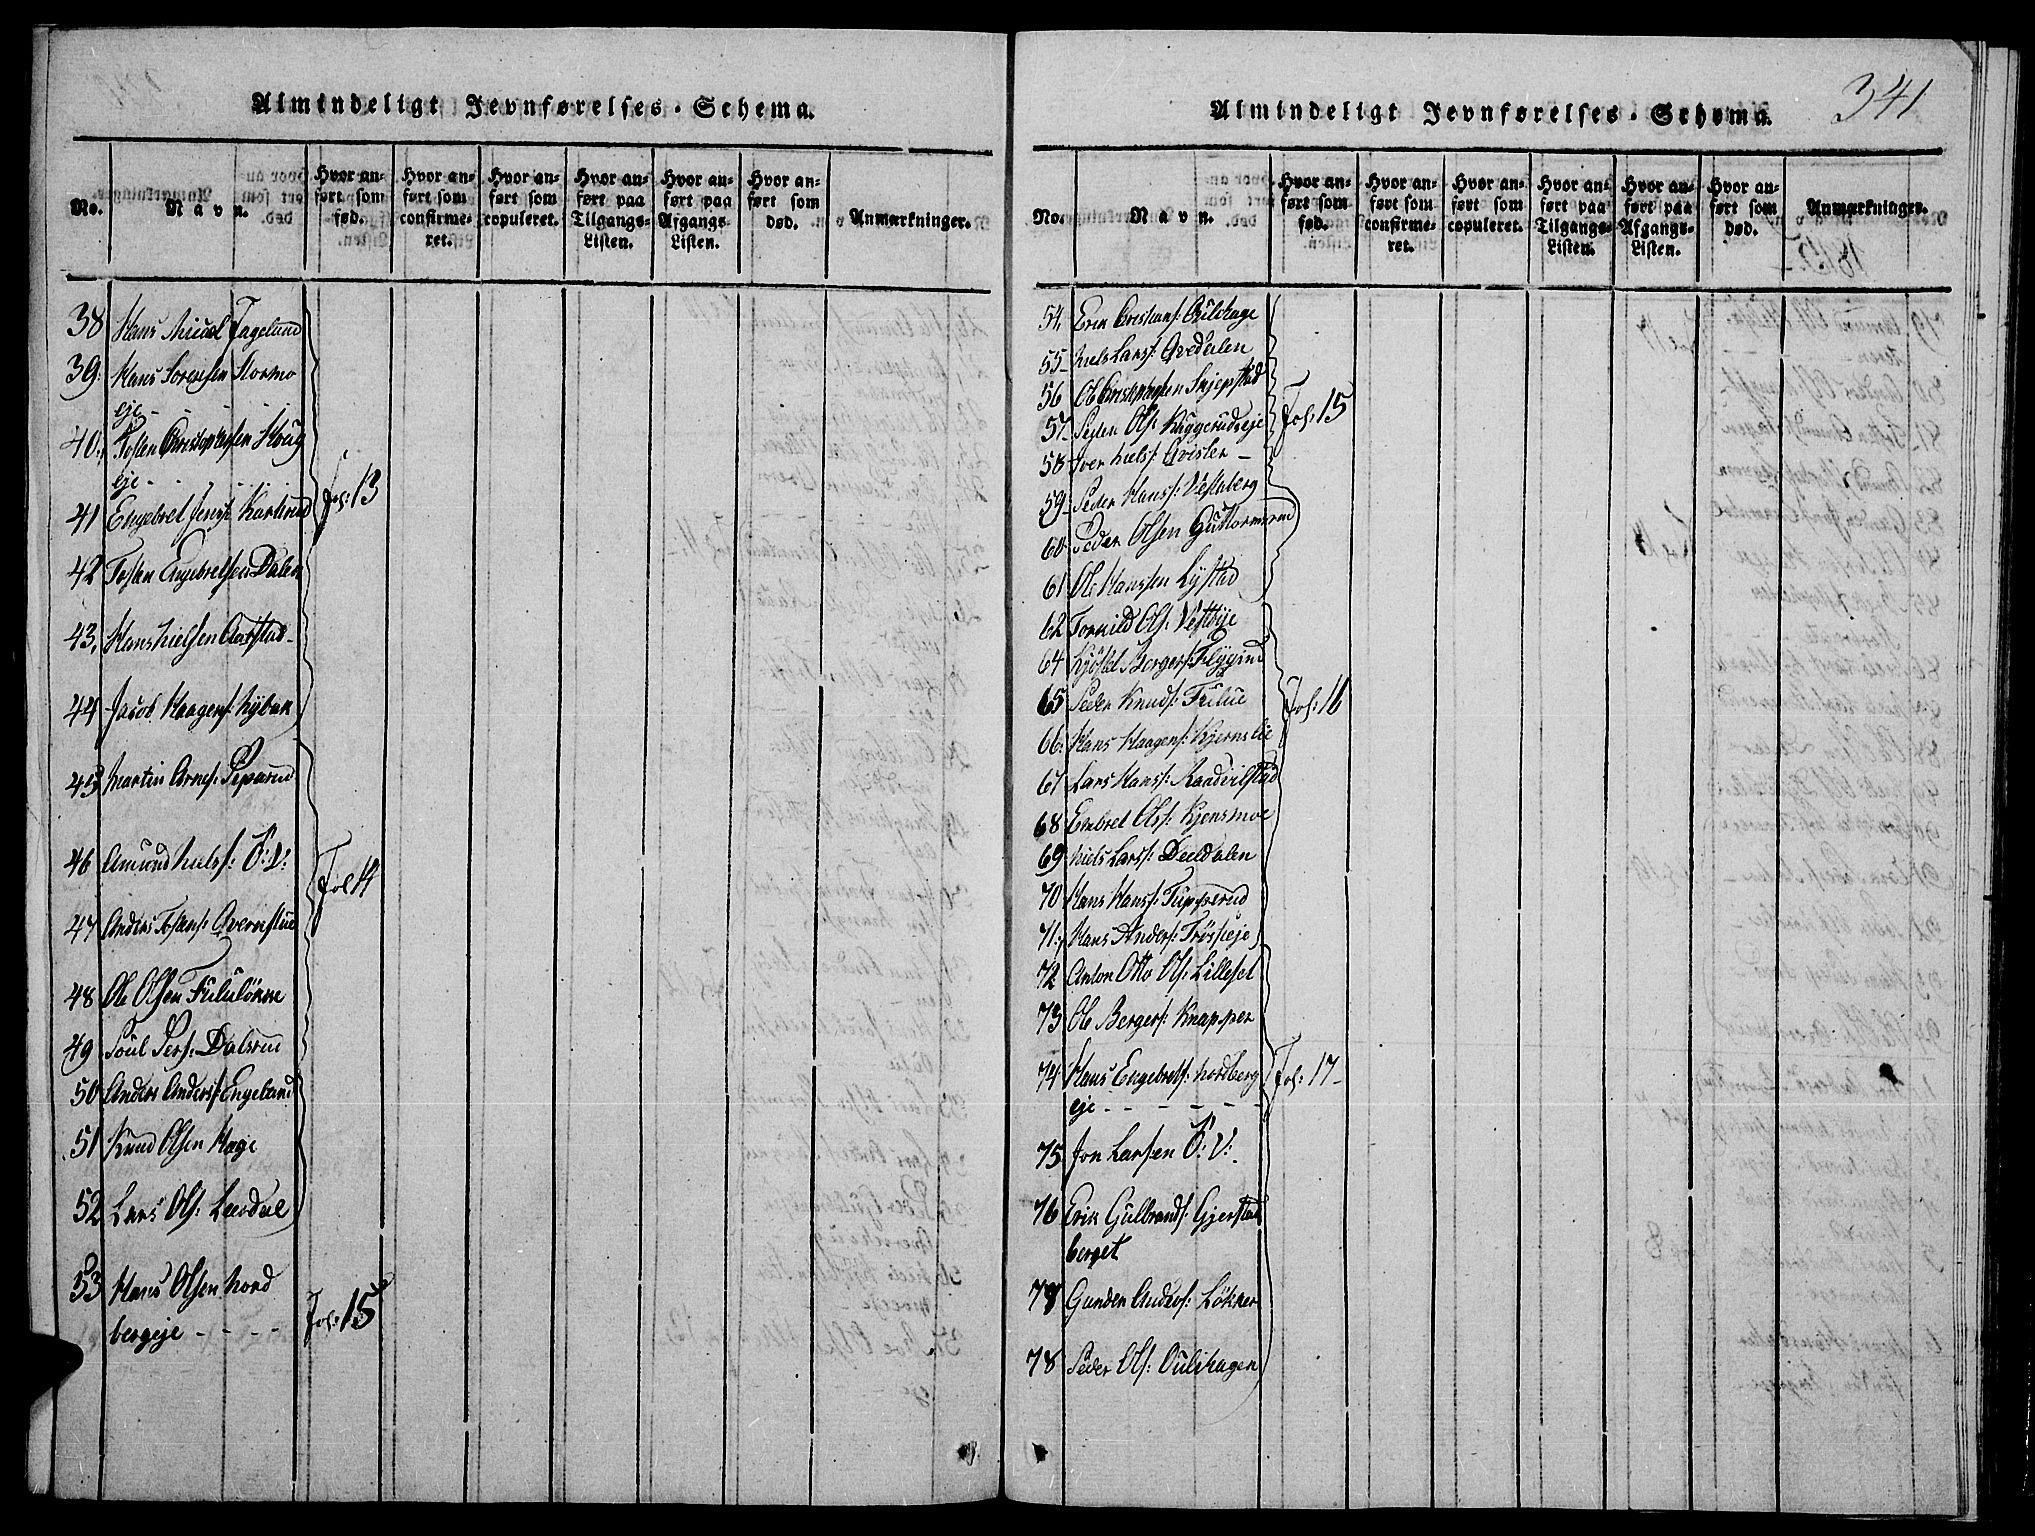 Almindeligt Jevnførelses-Schema.
No.
Navn.
Hvor anført som fød.
Hvor anført som confirmeret.
Hvor anført som copuleret.
Hvor anført paa Tilgangs-Listen.
Hvor anført paa Afgangs-Listen.
Hvor anført som død.
Anmærkninger.
38 Hans Michel Fagelund
39. Hans Sörensen Stormo
eje - - -
40. Tosten Christophersen Houg
eje - - -
41 Engebret Jensf:
Fol: 13
42 Tosten Engebretsen Dalen
43, Hans Nielsen
44 Jacob Haagens:
45 Martin Arnes:
46 Amund Niels: Ö: V:
Fol 14
47 Anders Tostens:
48 Ole Olsen Fululökke
49 Poul Pers: Dalsrud
50 Anders Anders: Engeland
51 Knud Olsen Hage
52 Lars Ols:
53 Hans Olsen Nord
bergeje - - - -
Fol: 15
Almindeligt Jevnførelses-Schema.
341
No.
Navn.
Hvor anført som fød.
Hvor anført som confirmeret.
Hvor anført som copuleret.
Hvor anført paa Tilgangs-Listen.
Hvor anført paa Afgangs-Listen.
Hvor anført som død.
Anmærkninger.
54. Erik Cristians:
55 - Niels Lars: Qvedalen
56 Ole Cristophersen Skjepstad
57 - Peder Ols: Ruggerudseje
Fol: 15
58 - Iver Niels: Qvisler -
59 - Peder Hans: Vestaberg
60 Peder Olsen Guttormsrud
61 Ole Hansen Lystad
62 Torkild Ols: Vestbye
64 Kjöstel Bergers: Flygind
65 Peder Knuds: Fulue
Fol: 16
66: Hans Haagens: Kjernslie
67 Lars Hans: Raadvilstad
68 Embret Ols: Kjensmoe
69 Niels Lars: Deeldalen
70 Hans Hans: Tupperud
71. Hans Anders: Frösseje
72 Anton Otto Ols: Lilleset
73 Ole Bergers: Knapper
74 Hans Engebrets: Nordberg
Fol: 17 -
eje - - - - - -
75 Jon Larsen Ö: V:
76 Erik Gulbrands: Gjerstad
berget
78 Gunder Anders: Lökker
78 Peder Ols: Oulihagen